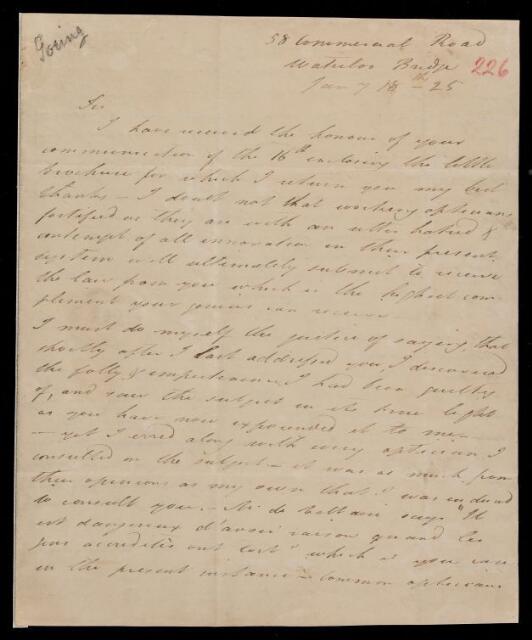 Going
58 Commercial Road
Waterloo Bridge
226
Jany 18th - 25
Sir
I have received the honour of your
communication of the 16th enclosing the little
brochure for which I return you my best
thanks - I doubt not that working opticians
fortified as they are with an utter hatred &
contempt of all innovation in their present
system will ultimately submit to receive
the law from you which is the highest com-
pliment your genius can receive
I must do myself the justice of saying that
shortly after I last addressed you I discovered
the folly & impertinence I had been guilty
of, and saw the subject in its true light
as you have now expounded it to me -
- yet I erred along with every optician I
consulted on the subject - it was as much from
their opinions as my own that I was induced
to consult you. - Mr de Voltaire says "Il
est dangereux d'avoir raison quand les
gens accredités ont tort" which is your case
in the present instance - Common opticians